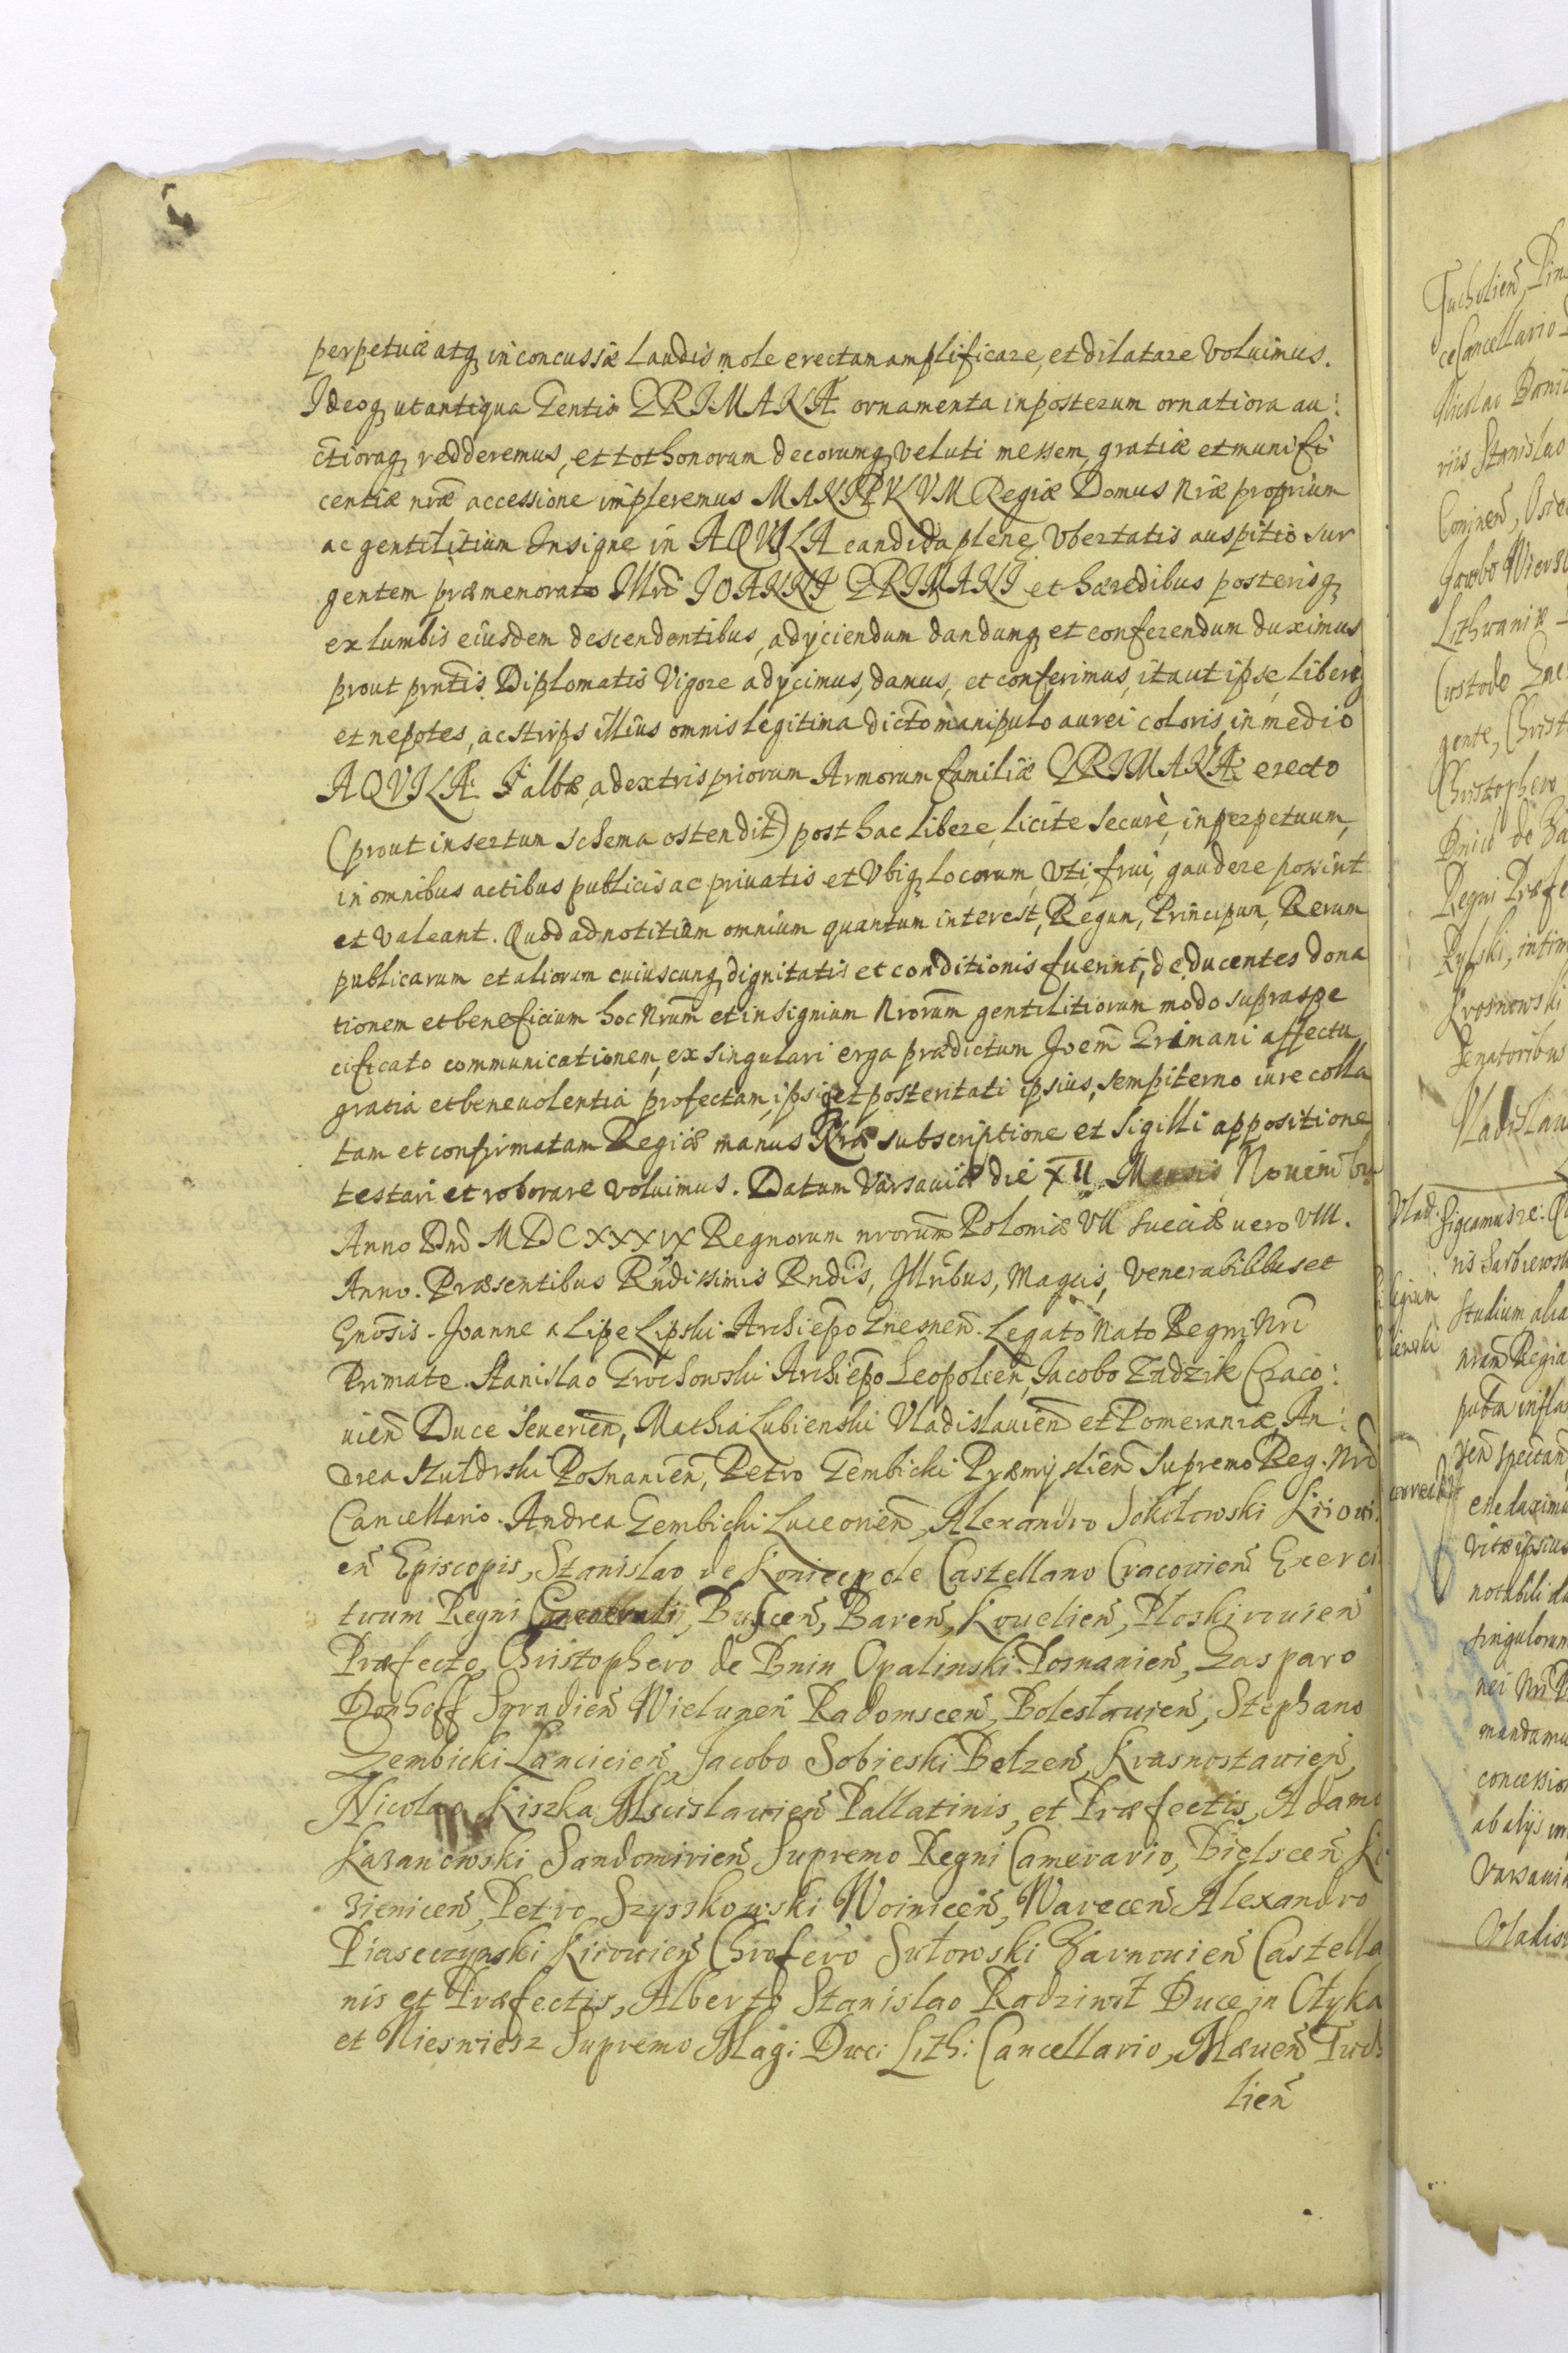 perpetuæ atq inconcussæ laudis mole erectam amplificare, et dilatare voluimus.
Ideoq ut antiqua Gentis GRIMANÆ ornamenta in posterum ornatiora au:
ctioraq redderemus, et tot honorum decorumq veluti messem, gratiæ et munifi
centiæ nræ accessione impleremus MANIPVLVM Regiæ Domus nræ proprium
ac gentilitium Insigne in AQVILA candida plene vbertatis auspitio sur
gentem præmenorato Illri IOANNI GRIMANI et hæredibus posterisq
ex lumbis eiusdem descendentibus, adyciendum dandumq et conferendum duximus
prout prntis Diplomatis vigore adycimus, damus, et conferimus, ita ut ipse, liberiq
et nepotes, ac stirps illius omnis legitima dicto manipulo aurei coloris, in medio
AQVILÆ albæ, a dextris priorum Armorum familiæ GRIMANÆ erecto
(prout insertum schema ostendit) post hac libere, licite securè, in perpetuum,
in omnibus actibus publicis ac priuatis et vbiq locorum, vti, frui, gaudere possint
et valeant. Quod ad notitiam omnium quantum interest, Regum, Principum, Rerum
publicarum et aliorum cuiuscunq dignitatis et conditionis fuerint, deducentes dona
tionem et beneficium hoc nrum et insignium nrorum gentilitiorum modo supraspe
cificato communicationem, ex singulari erga prædictum Joem Grimani affectu
gratia et beneuolentia profectam, ipsi et posteritati ipsius, sempiterno iure colla
tam et confirmatam Regiæ manus Nræ subscriptione et Sigilli appositione
testari et roborare voluimus. Datum Varsauiæ die XII Mensis Nouembr
Anno Dni MDCXXXIX Regnorum nrorum Poloniæ VII Sueciæ uero VIII.
Anno. Præsentibus Rndissimis Rndis, Illribus, Magcis, Venerabilibus et
Gnosis. Joanne a Lipe Lipski Archiepo Gnesnen. Legato Nato Regni Nri
Primate. Stanislao Grochowski Archiepo Leopolien, Jacobo Zadzik Craco:
uien Duce Seuerien, Mathia Lubienski Vladislauien et Pomeraniæ, An:
drea Szułdrski Posnanien, Petro Gembicki Præmyslien Supremo Reg. Nri
Cancellario. Andrea Gembicki Luceorien, Alexandro Sokołowski Kiioui
en Episcopis, Stanislao de Koniecpole Castellano Cracouien Exerci
tuum Regni Generali, Buscen, Baren, Kouelien, Płoskirouien
Præfecto, Christophero de Bnin Opalinski Posnanien, Gasparo
Donhoff Syradien Wielunen Radomscen, Bolesłauien, Stephano
Gembicki Lancicien, Jacobo Sobieski Bełzen, Krasnostauien,
Nicolao Kiszka Mscislauien Pallatinis, et Præfectis, Adamo
Kazanowski Sandomirien Supremo Regni Camerario, Bielscen Ko
zienicen, Petro Szyszkowski Woinicen, Warecen Alexandro
Piaseczynski Kiiouien Chrofero Sułowski Zarnouien Castella
nis et Præfectis, Alberto Stanislao Radziwił Duce in Ołyka
et Nieswiesz Supremo Magi: Duci: Lith: Cancellario, Mæuen Tucho
lien
Tucholien, Pins
ceCancellario
Nicolao Dani
riis Stanislao
Coninen, Osie
Jacobo Wiers
Lithuaniæ
Custode Gne
gente, Christ
Christophero
Bnin de
Regni Præfe
Rylski, intim
Krosnowski
Senatoribus
Vladislau
Vlad: Sigeamus re:
nis Sarbiewski
Studium alia
nram Regia
correcta
esse duximu
vitæ ipsius
notabili
singulorum
nei Nri
mandamu
concession
ab alijs
Varsauiæ
Vladis